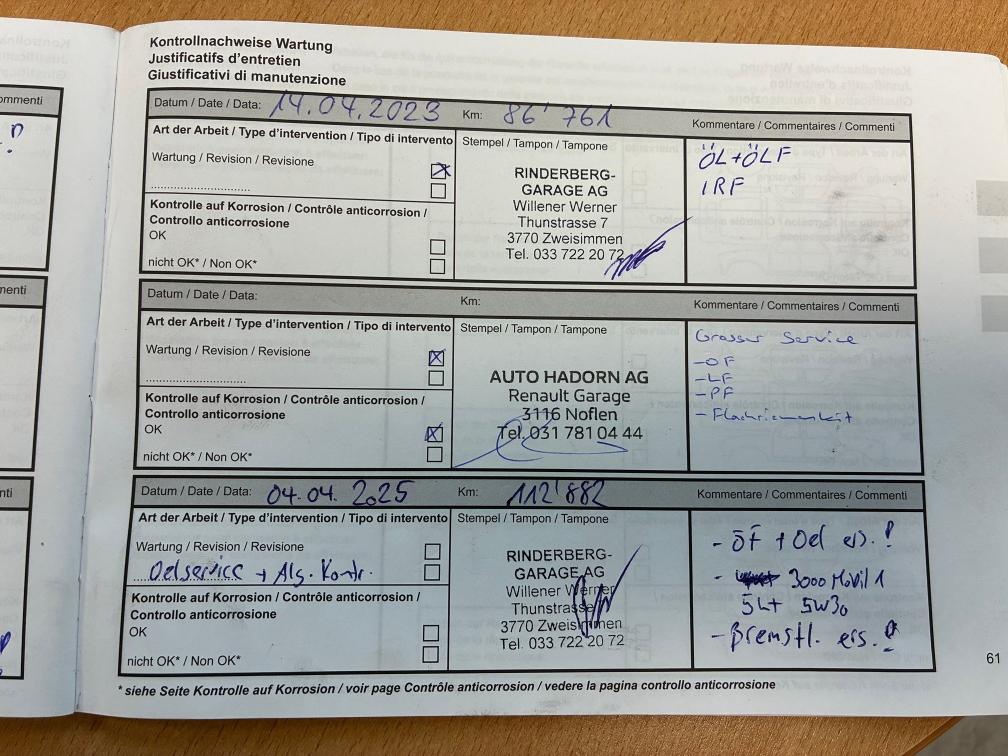 Kontrollnachweise Wartung
Justificatifs d'entretien
Giustificativi di manutenzione
ommenti
Datum / Date / Data: 14.04.2023 Km: 86'761 Kommentare / Commentaires / Commenti
Art der Arbeit / Type d'intervention / Tipo di intervento
Wartung / Revision / Revisione
Kontrolle auf Korrosion / Contrôle anticorrosion /
Controllo anticorrosione
OK
nicht OK* / Non OK*
Stempel / Tampon / Tampone
RINDERBERG-
GARAGE AG
Willener Werner
Thunstrasse 7
3770 Zweisimmen
Tel. 033 722 20 72
ÖL+ÖLF
IRF
menti
Datum / Date / Data: Km: Kommentare / Commentaires / Commenti
Art der Arbeit / Type d'intervention / Tipo di intervento
Wartung / Revision / Revisione
Kontrolle auf Korrosion / Contrôle anticorrosion /
Controllo anticorrosione
OK
nicht OK* / Non OK*
Stempel / Tampon / Tampone
AUTO HADORN AG
Renault Garage
3116 Noflen
Tel. 031 781 04 44
Grosser Service
-OF
-LF
-PF
- Flachriemenkit
nti
Datum / Date / Data: 04.04.2025 Km: 112'882 Kommentare / Commentaires / Commenti
Art der Arbeit / Type d'intervention / Tipo di intervento
Wartung / Revision / Revisione
Oelservice + Alg. Kontr.
Kontrolle auf Korrosion / Contrôle anticorrosion /
Controllo anticorrosione
OK
nicht OK* / Non OK*
Stempel / Tampon / Tampone
RINDERBERG-
GARAGE AG
Willener Werner
Thunstrasse
3770 Zweisimmen
Tel. 033 722 20 72
- ÖF + Oel ers. !
- 3000 Mobil 1
5Lt 5W30
- Bremsfl. ers. !
* siehe Seite Kontrolle auf Korrosion / voir page Contrôle anticorrosion / vedere la pagina controllo anticorrosione
61